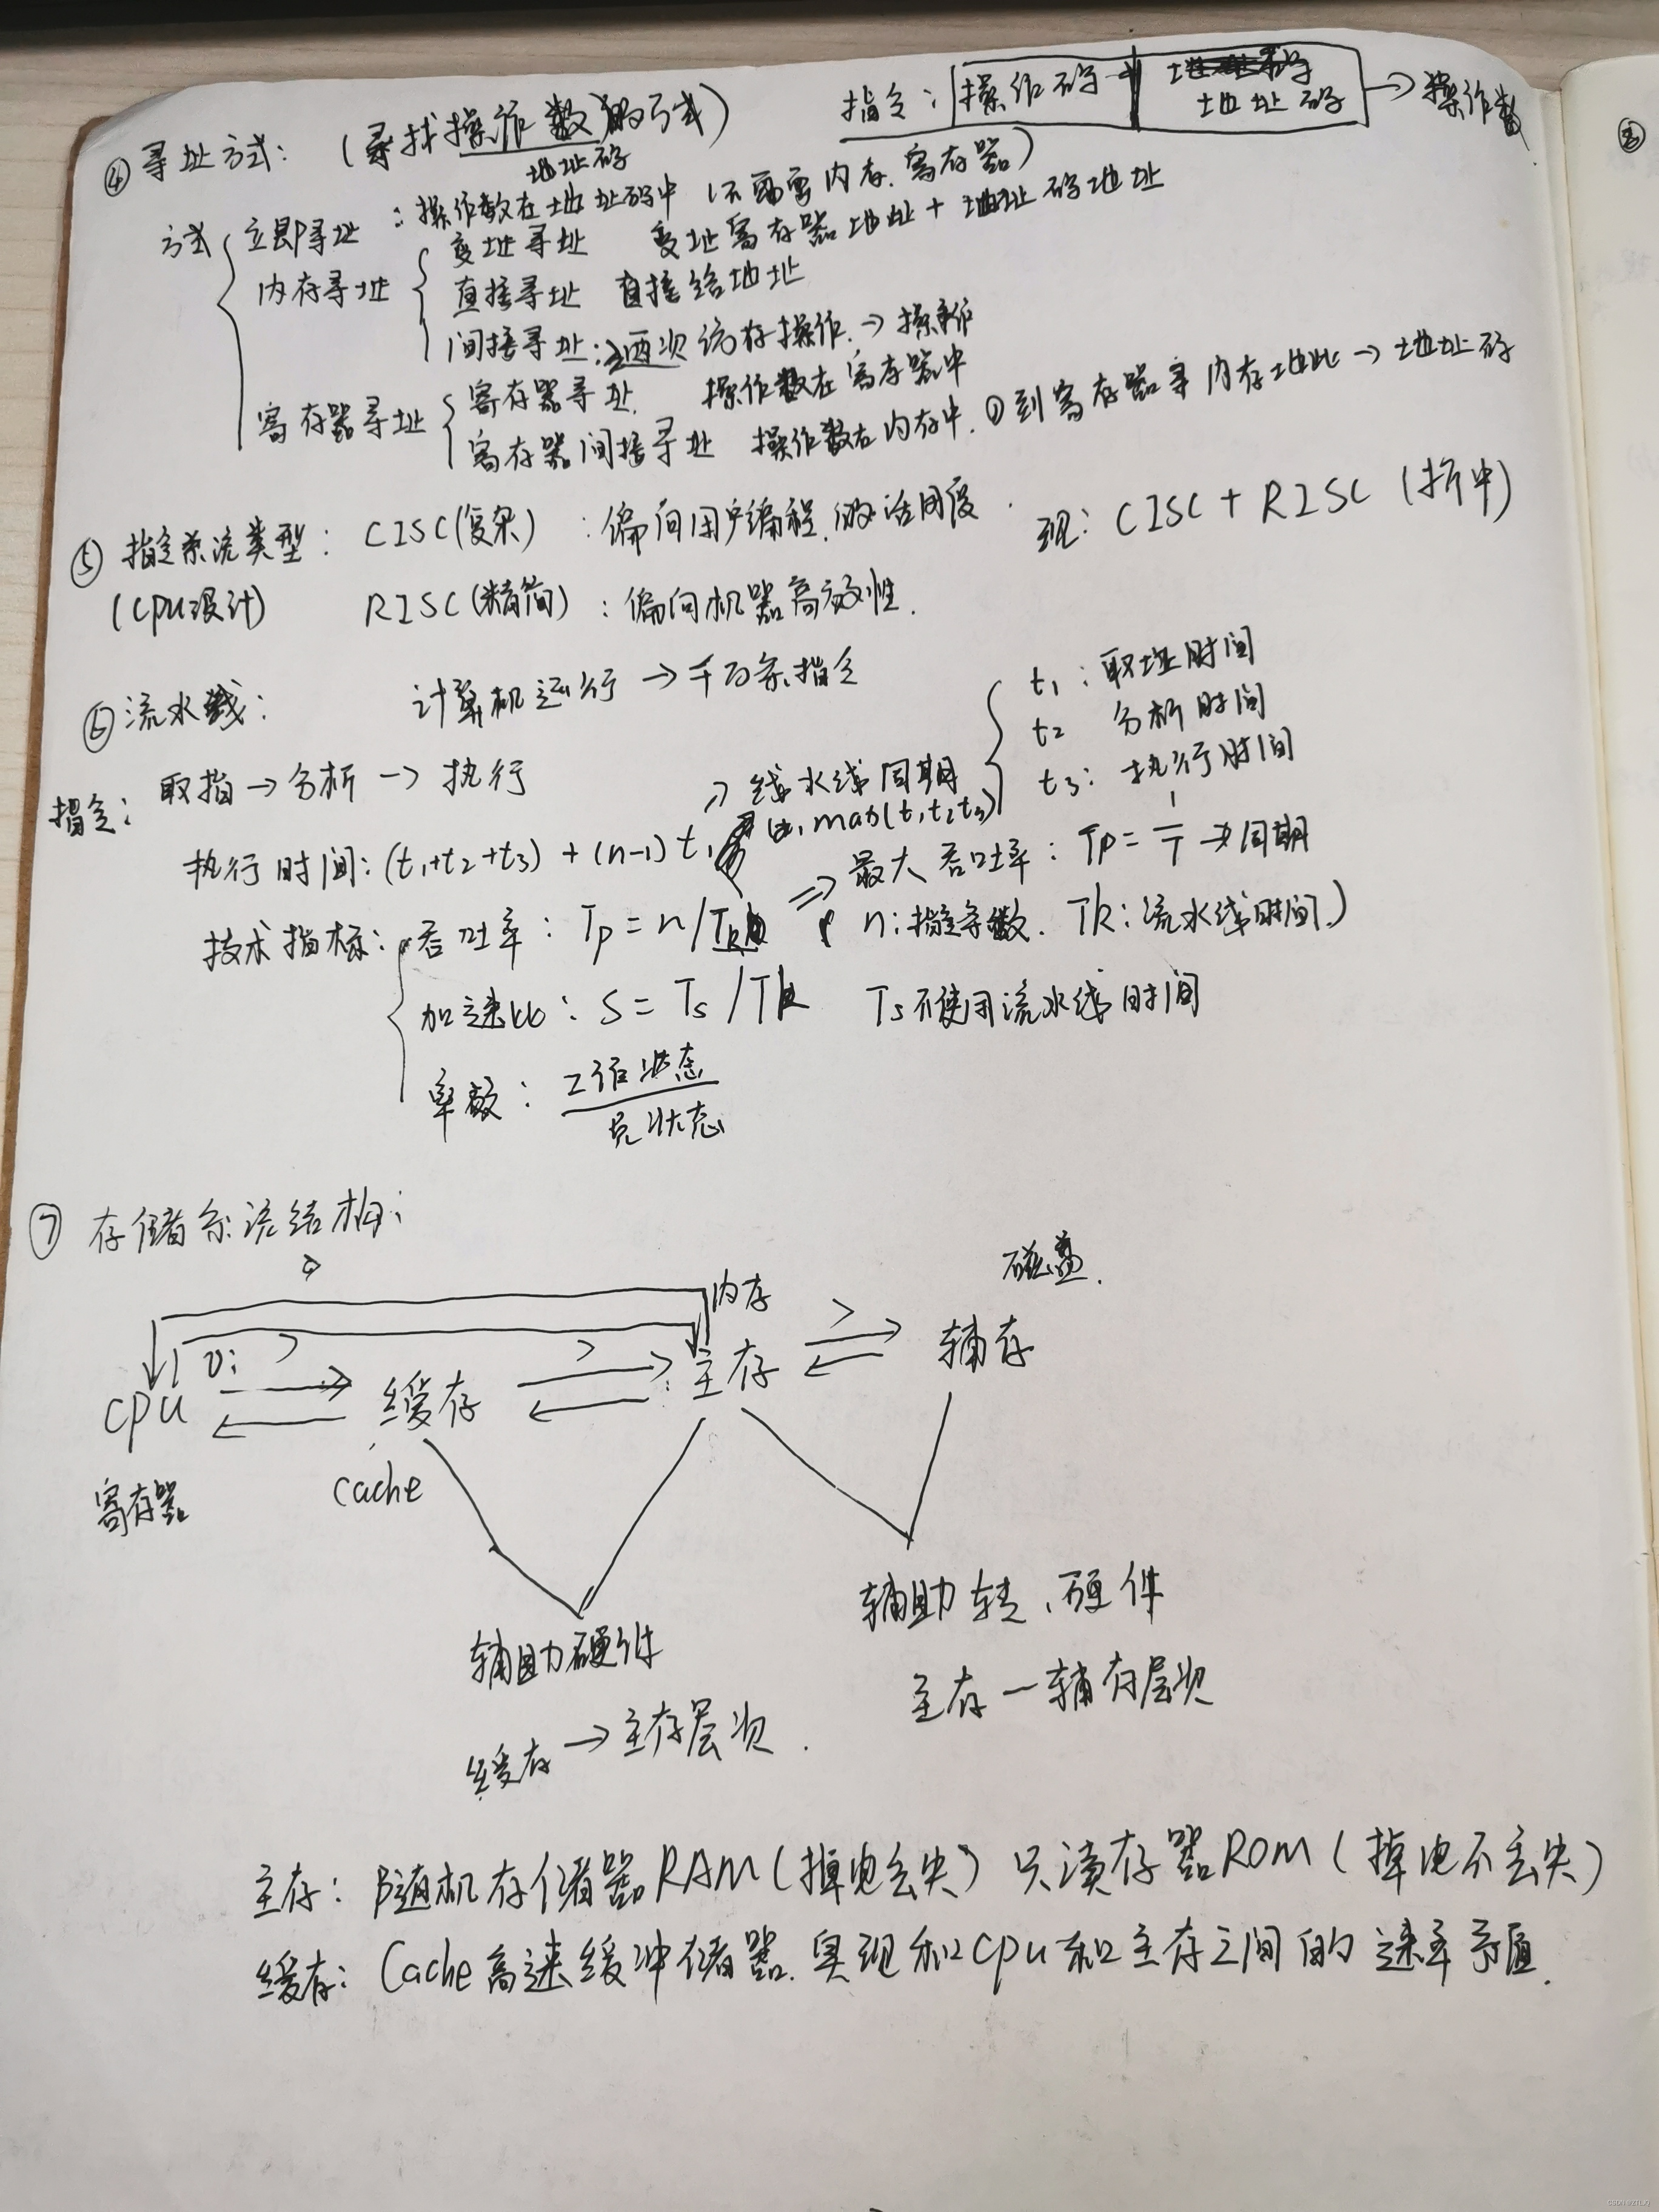 ④ 寻址方式: (寻找操作数的方式) 指令: 操作码 地址码 → 操作数
地址码
方式 立即寻址 : 操作数在地址码中 (不需要内存、寄存器)
内存寻址 变址寻址 变址寄存器地址 + 地址码地址
直接寻址 直接给地址
间接寻址: 两次访存操作. → 操作
寄存器寻址 寄存器寻址. 操作数在寄存器中
寄存器间接寻址 操作数在内存中. ① 到寄存器寻内存地址 → 地址码
⑤ 指令系流类型: CISC(复杂) : 偏向用户编程, 灵活用度. 现: CISC + RISC (折中)
(CPU设计) RISC(精简) : 偏向机器高效性.
⑥ 流水线: 计算机运行 → 千百条指令
t₁: 取址时间
t₂ 分析时间
t₃: 执行时间
指令: 取指 → 分析 → 执行
→ 线水线周期
max(t₁t₂t₃)
执行时间: (t₁+t₂+t₃) + (n-1) t
⇒ 最大吞吐率: Tp = 1/T → 周期
技术指标: 吞吐率: Tp = n/Tk n: 指令条数. Tk: 流水线时间.)
加速比: S = Ts / Tk Ts 不使用流水线时间
率数: 工作状态
总状态
⑦ 存储系流结构:
磁盘.
内存
CPU 缓存 主存 辅存
寄存器 cache
辅助软、硬件
辅助硬件
主存一辅存层次
缓存 → 主存层次.
主存: 随机存储器RAM (掉电丢失) 只渎存器ROM (掉电不丢失)
缓存: Cache高速缓冲储器. 实现和CPU和主存之间的速率矛盾.
③
CSDN @ZTLXJ